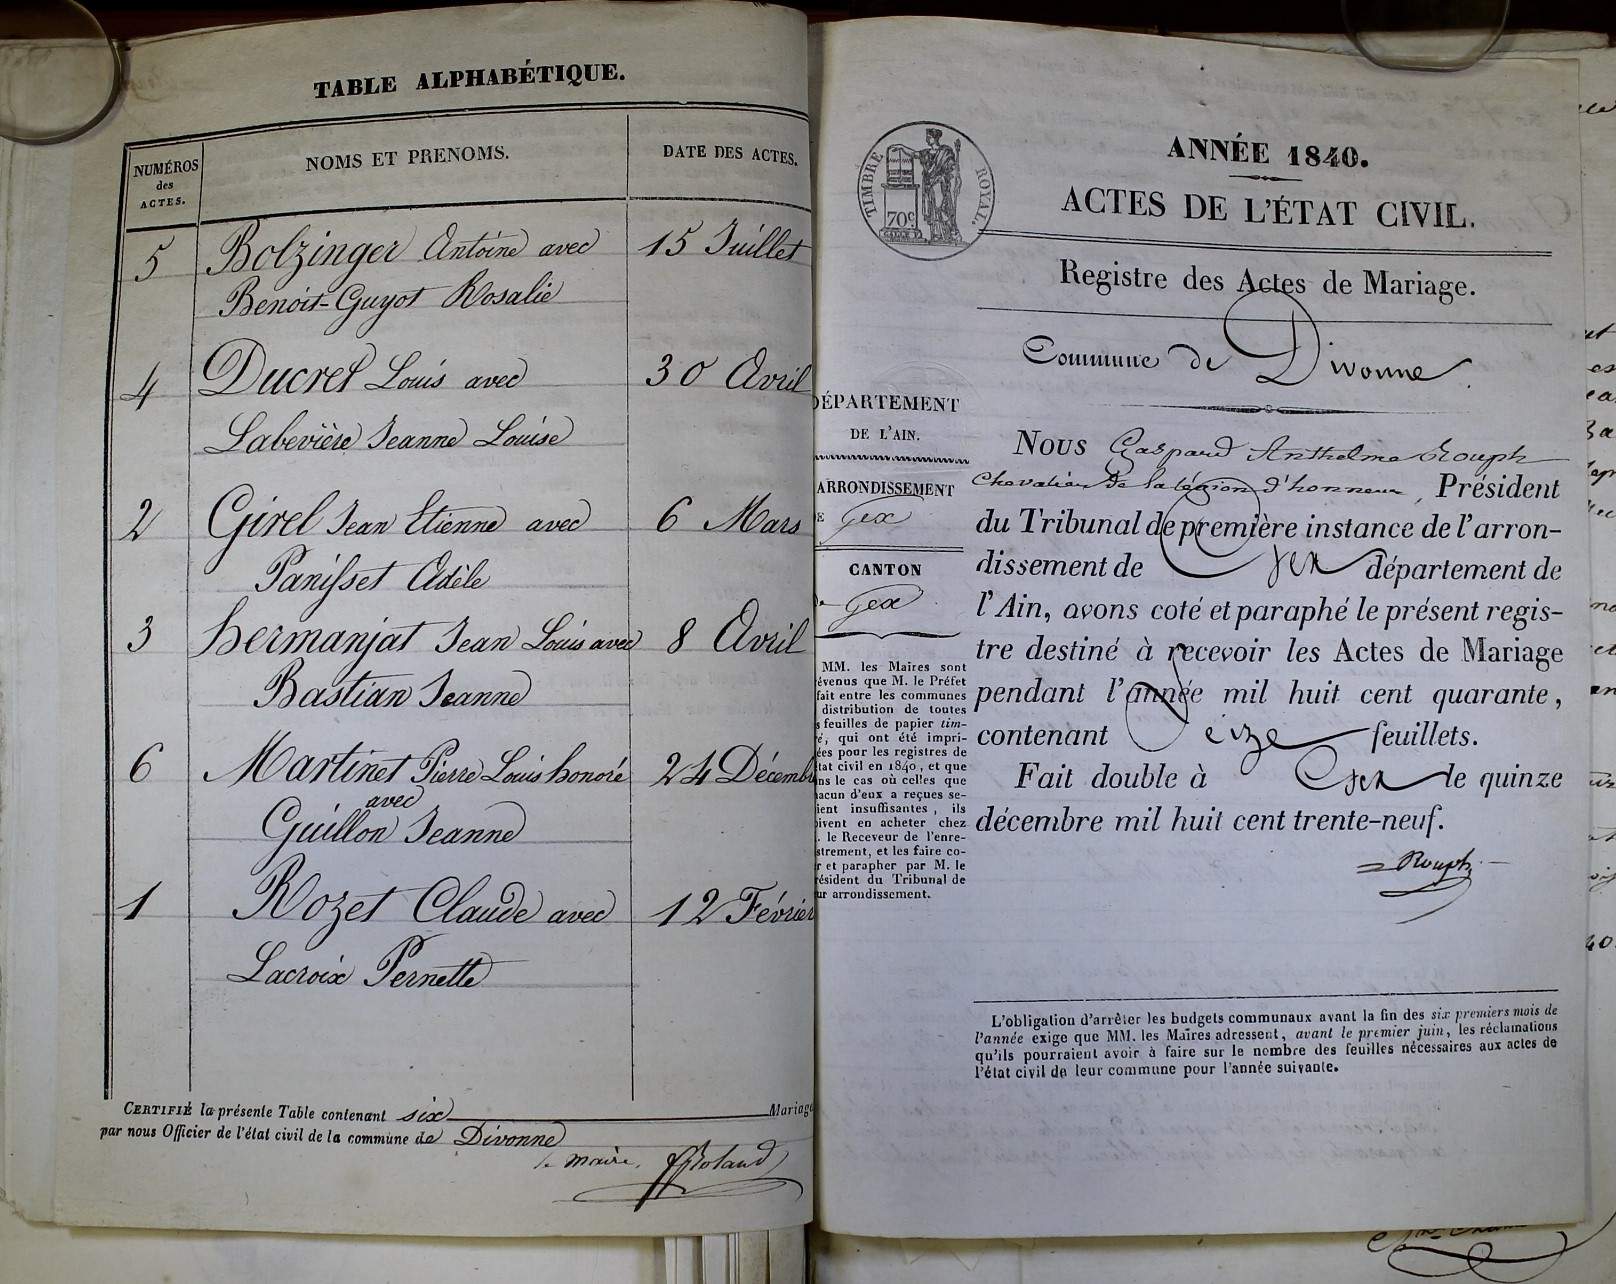 TABLE ALPHABÉTIQUE.
NUMÉROS
des
ACTES.
NOMS ET PRENOMS.
DATE DES ACTES.
5 Bolzinger Antoine avec 15 Juillet
Benoit-Guyot Rosalie
4 Ducret Louis avec 30 Avril
Labevière Jeanne Louise
2 Girel Jean Etienne avec 6 Mars
Panisset Adèle
3 hermanjat Jean Louis avec 8 Avril
Bastian Jeanne
6 Martinet Pierre Louis honoré 24 Décemb
avec
Guillon Jeanne
1 Rozet Claude avec 12 Février
Lacroix Pernette
CERTIFIÉ la présente Table contenant six Mariage
par nous Officier de l'état civil de la commune de Divonne
le maire, Roland
TIMBRE ROYAL.
70c
ANNÉE 1840.
ACTES DE L'ÉTAT CIVIL.
Registre des Actes de Mariage.
Commune de Divonne.
DÉPARTEMENT
DE L'AIN.
ARRONDISSEMENT
DE Gex
CANTON
de Gex
MM. les Maires sont
évenus que M. le Préfet
fait entre les communes
distribution de toutes
s feuilles de papier tim-
é, qui ont été impri-
ées pour les registres de
tat civil en 1840, et que
ns le cas où celles que
acun d'eux a reçues se-
ient insuffisantes, ils
ivent en acheter chez
. le Receveur de l'enre-
strement, et les faire co-
r et parapher par M. le
résident du Tribunal de
ur arrondissement.
Nous Gaspard Anthelme Rouph
Chevalier de la légion d'honneur, Président
du Tribunal de première instance de l'arron-
dissement de Gex département de
l'Ain, avons coté et paraphé le présent regis-
tre destiné à recevoir les Actes de Mariage
pendant l'année mil huit cent quarante,
contenant Seize feuillets.
Fait double à Gex le quinze
décembre mil huit cent trente-neuf.
Rouph
L'obligation d'arrêter les budgets communaux avant la fin des six premiers mois de
l'année exige que MM. les Maires adressent, avant le premier juin, les réclamations
qu'ils pourraient avoir à faire sur le nombre des feuilles nécessaires aux actes de
l'état civil de leur commune pour l'année suivante.